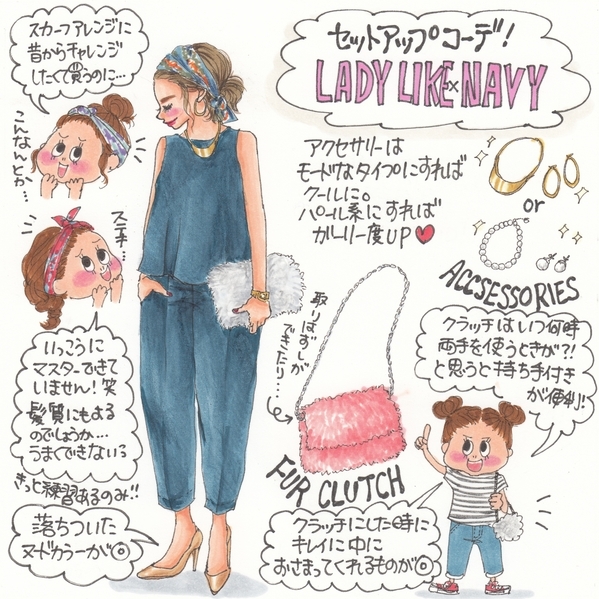 スカーフアレンジに
昔からチャレンジ
したくて買うのに…
こんなんとか…
ステキ…
いっこうに
マスターできて
いません！笑
髪質にもよる
のでしょうか…
うまくできない
きっと練習あるのみ!!
落ちついた
ヌードカラーが◎
セットアップコーデ！
LADY LIKE×NAVY
アクセサリーは
モードなタイプにすれば
クールに。
パール系にすれば
ガーリー度UP♥
or
ACCSESSORIES
取りはずしが
できたり…
FUR CLUTCH
クラッチはいつ何時
両手を使うときが?!
と思うと持ち手付き
が便利!
クラッチにした時に
キレイに中に
おさまってくれるものが◎